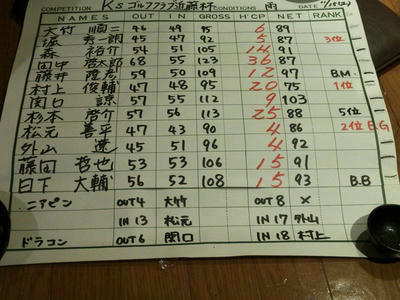 COMPETITION Ksゴルフクラブ近藤杯 CONDITIONS 雨 DATE
NAMES OUT IN GROSS H'CP NET RANK
大竹 順二 46 49 95 6 89
秀一朗 45 47 92 5 87 3位
森 裕介 54 51 105 14 91
田中 啓太郎 68 55 123 36 87
藤井 隆彦 59 50 109 12 97 B.M.
村上 俊輔 47 48 95 20 75 1位
関口 諒 57 55 112 9 103
杉本 啓介 57 56 113 25 88 5位
松元 喜平 47 43 90 4 86 2位 B.G
外山 遼 45 51 96 4 92
藤田 哲也 53 53 106 15 91
日下 大輔 56 52 108 15 93 B.B
ニアピン OUT4 大竹 OUT8 ×
IN13 松元 IN17 外山
ドラコン OUT6 関口 IN18 村上